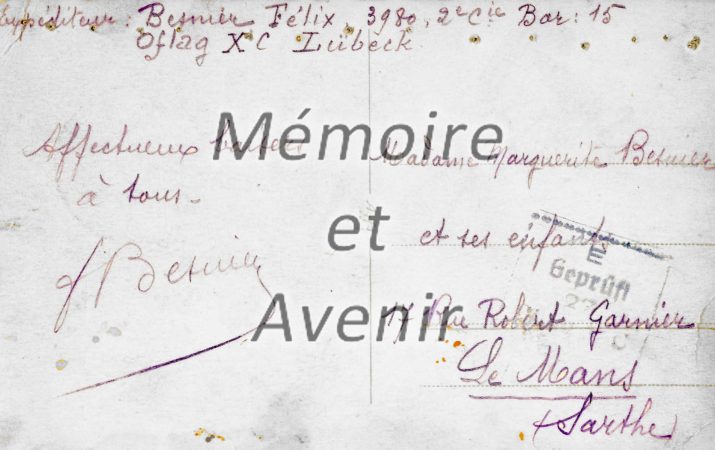 Expéditeur : Besnier Félix, 3980, 2e Cie Bar : 15
Oflag XC Lübeck
Affectueux baisers
à tous.
F Besnier
Madame Marguerite Besnier
et ses enfants
17 Rue Robert Garnier
Le Mans
Sarthe
Geprüft
Mémoire
et
Avenir